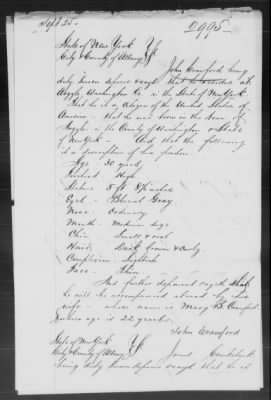 Sept 25 -
2995.
State of New York
City & County of Albany } SS
John Crawford being
duly sworn deposes & says that he resides at
Argyle Washington Co in the State of New York.
That he is a Citizen of the United States of
America - that he was born in the Town of
Argyle in the County of Washington & State
of New York - And that the following
is a description of his person
Age 30 years
Forehead High
Stature 5 ft 8 inches
Eyes Blueish Gray
Nose Ordinary
Mouth Medium size
Chin Small & oval
Hair Dark brown & curly
Complexion
Face Thin
And further deponent sayth that
he will be accompanied abroad by his
wife - whose name is Mary B. Crawford
& whose age is 22 years
John Crawford
State of New York
City & County of Albany } SS
James
being duly sworn deposes & says that he is